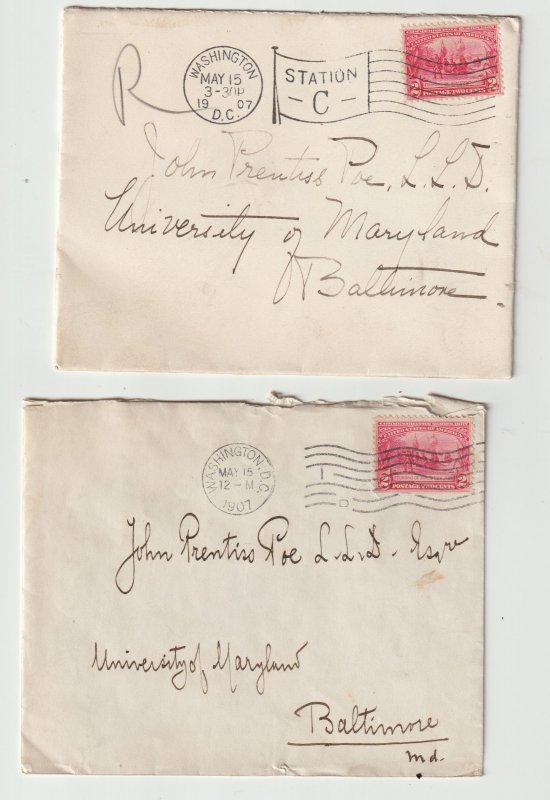 R
WASHINGTON
MAY 15
3-30P
1907
D.C.
STATION
- C -
UNITED STATES OF AMERICA
2 POSTAGE TWO CENTS 2
John Prentiss Poe, L.L.D.
University of Maryland
Baltimore.
WASHINGTON, D.C.
MAY 15
12-M
1907
I
D
UNITED STATES OF AMERICA
2 POSTAGE TWO CENTS 2
John Prentiss Poe L.L.D. Esqre
University of Maryland
Baltimore
Md.